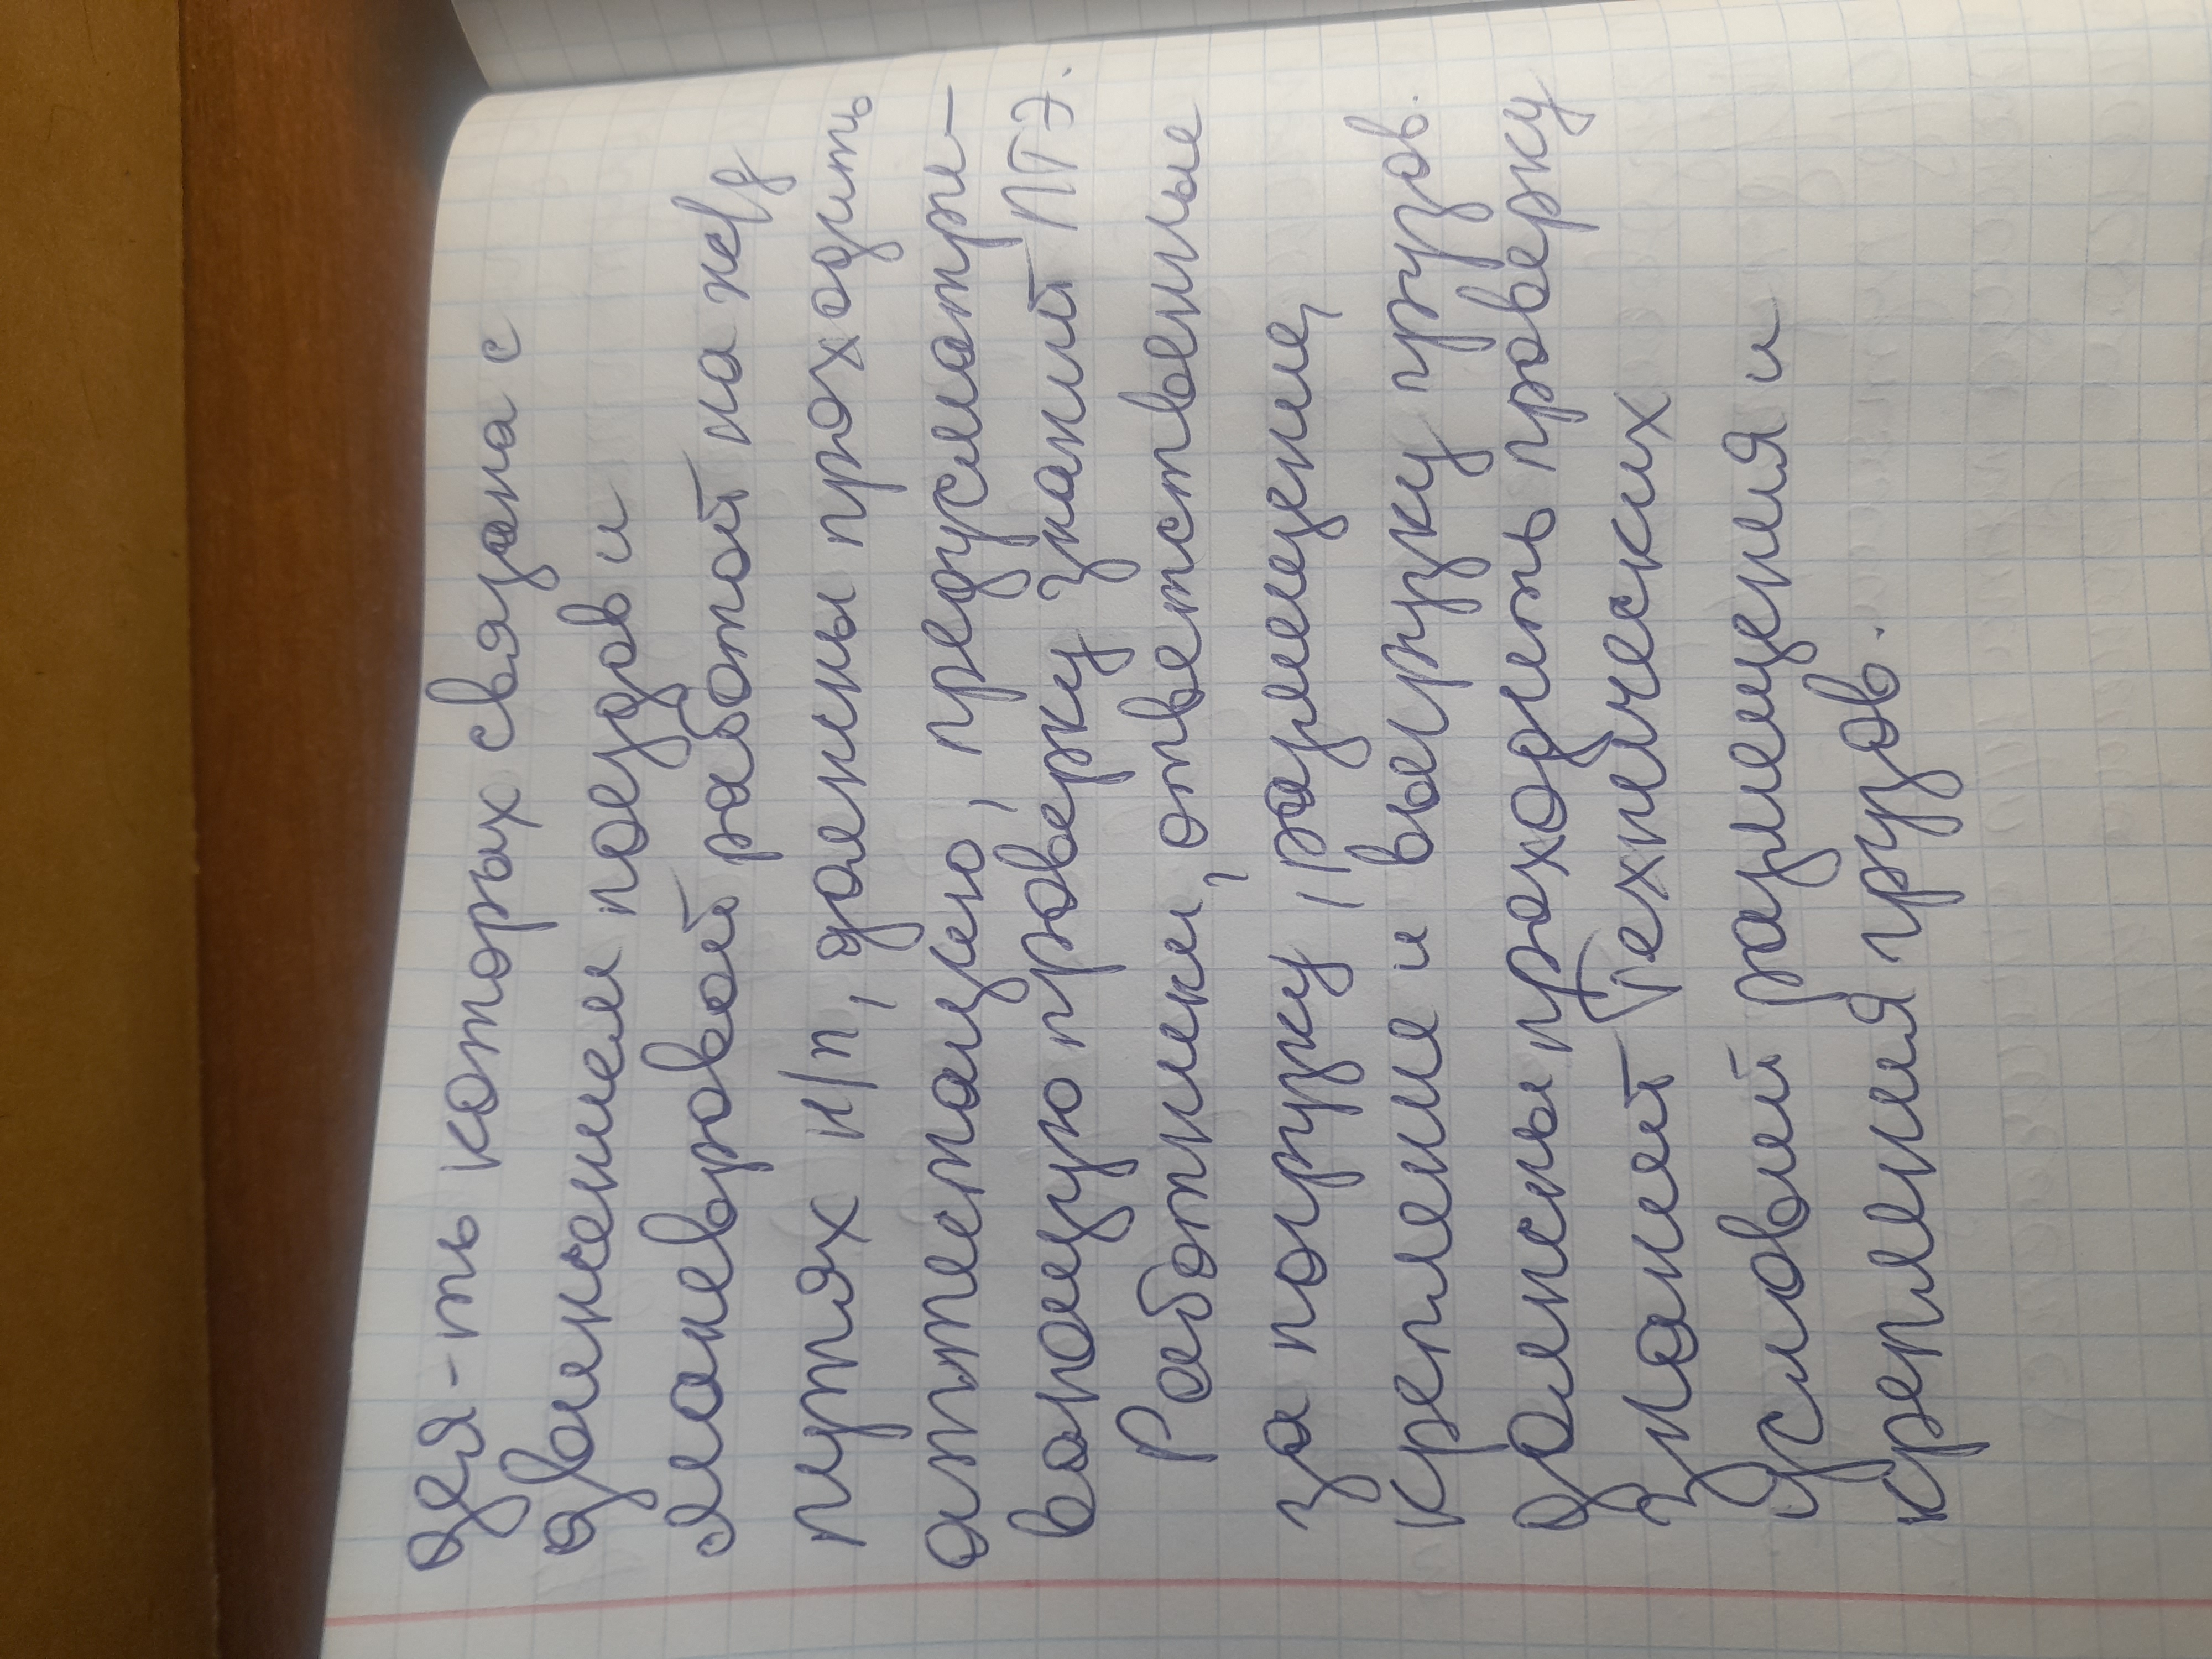 дея-ть которых связана с
движением поездов и
маневровой работой на ж/д
путях н/п, должны проходить
аттестацию, предусматри-
вающую проверку знаний ПТЭ.
Работники, ответственные
за погрузку, размещение,
крепление и выгрузку грузов.
должны проходить проверку
знаний Технических
условий размещения и
крепления грузов.